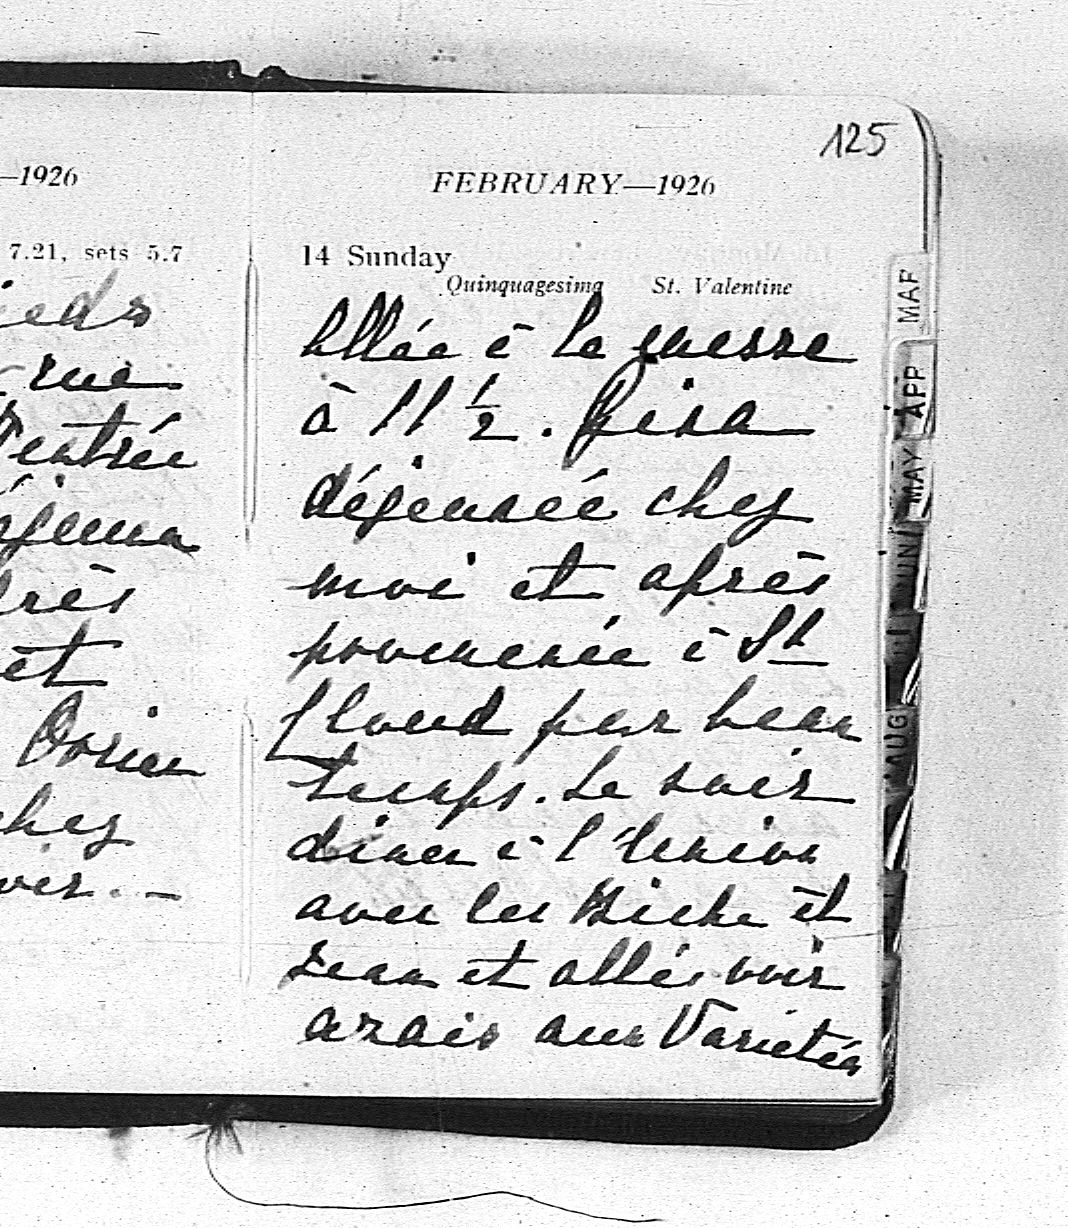 125
—1926
7.21, sets 5.7
ieds
rue
Rentrée
éjeuna
près
et
Orsier
chez
oir. —
FEBRUARY—1926
14 Sunday
Quinquagesima St. Valentine
Allée à la messe
à 11 ½. Gisa
déjeunée chez
moi et après
promenée à St
Cloud par beau
temps. Le soir
diner à l'Union
avec les Biche et
Jean et allée voir
azais aux Variétés
MAR
APP
MAY
JUN
AUG